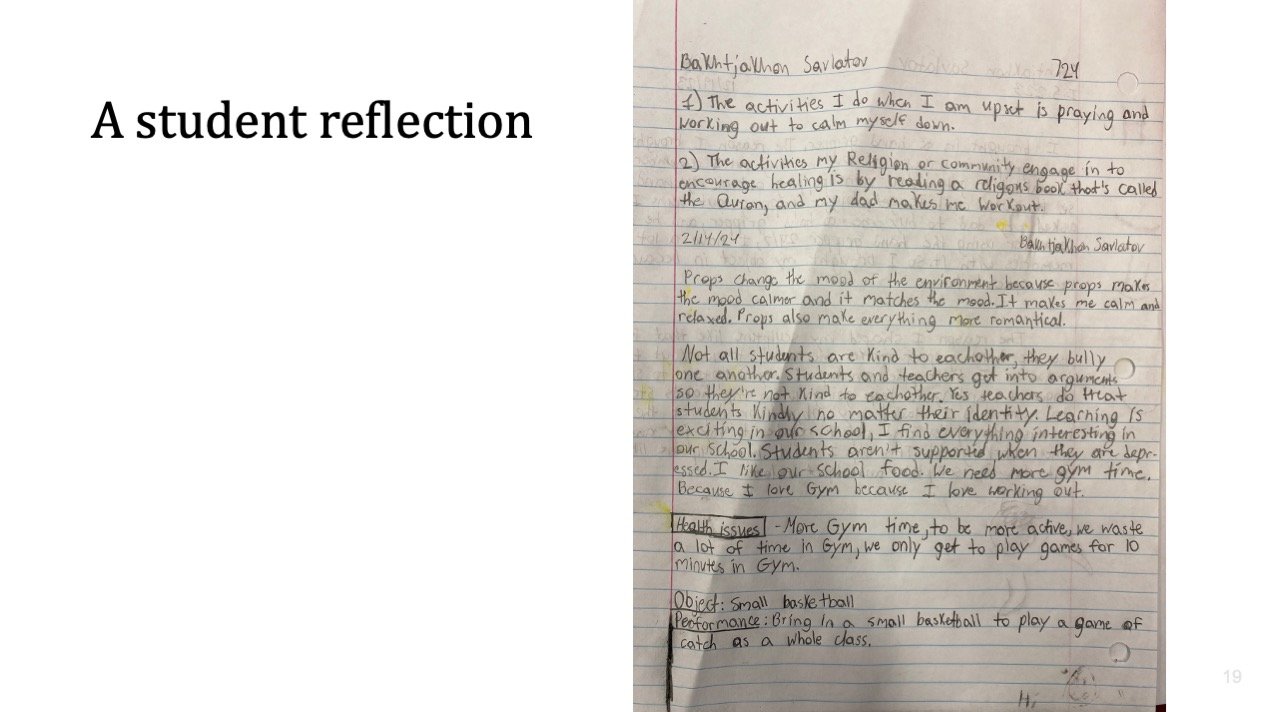 A student reflection
Bakhtjakhon Savlatov 724
1) The activities I do when I am upset is praying and
working out to calm myself down.
2) The activities my Religion or community engage in to
encourage healing is by reading a religous book that's called
the Quran, and my dad makes me workout.
2/14/24 Bakhtjakhon Savlatov
Props change the mood of the environment because props makes
the mood calmer and it matches the mood. It makes me calm and
relaxed. Props also make everything more romantical.
Not all students are kind to eachother, they bully
one another. Students and teachers get into arguments
so they're not kind to eachother. Yes teachers do treat
students kindly no matter their identity. Learning is
exciting in our school, I find everything interesting in
our school. Students aren't supported when they are depr-
essed. I like our school food. We need more gym time.
Because I love Gym because I love working out.
Health issues - More Gym time, to be more active, we waste
a lot of time in Gym, we only get to play games for 10
minutes in Gym.
Object: Small basketball
Performance: Bring in a small basketball to play a game of
catch as a whole class.
Hi
19